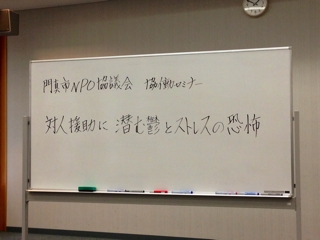 門真市NPO協議会 協働セミナー
対人援助に潜む鬱とストレスの恐怖